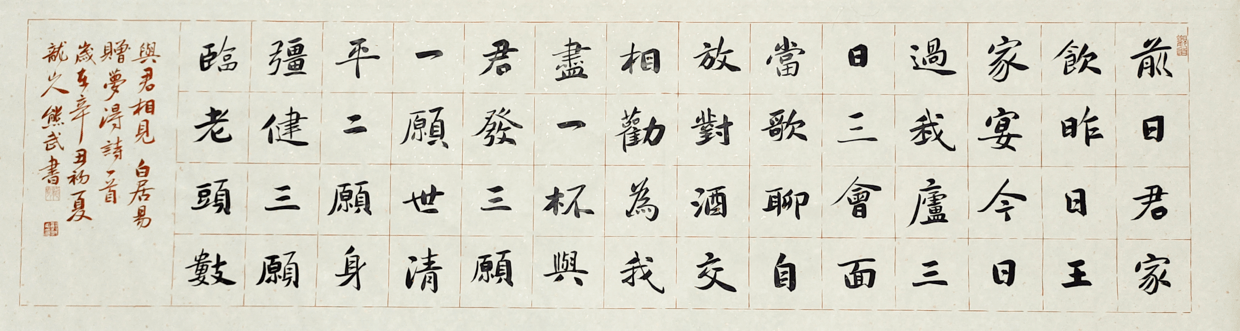 前日君家
飲昨日王
家宴今日
過我廬三
日三會面
當歌聊自
放對酒交
相勸為我
盡一杯與
君發三願
一願世清
平二願身
彊健三願
臨老頭數
與君相見 白居易
贈夢得詩一首
歲在辛丑初夏
龍山人熊武書